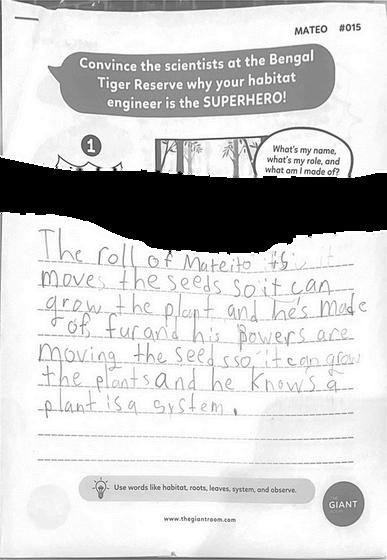 MATEO #015
Convince the scientists at the Bengal
Tiger Reserve why your habitat
engineer is the SUPERHERO!
1
What's my name,
what's my role, and
what am I made of?
The roll of Mateito is
moves the seeds so it can
grow the plant and he's made
of fur and his powers are
moving the seed sso it can grow
the plants and he knows a
plant is a system.
Use words like habitat, roots, leaves, system, and observe.
www.thegiantroom.com
THE
GIANT
ROOM